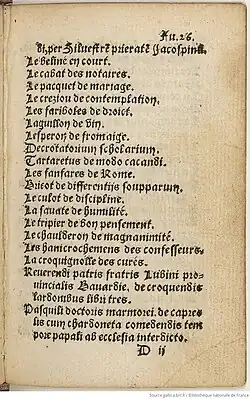 Fu. 26.
di, per Siluestrẽ prieratẽ Jacospinũ.
Le beliné en court.
Le cabat des notaires.
Le pacquet de mariage.
Le creziou de contemplation.
Les fariboles de droict.
Laguillon de vin.
Lesperon de fromaige.
Decrotatorium scholarium.
Tartaretus de modo cacandi.
Les fanfares de Rome.
Bricot de differentijs soupparum.
Le culot de discipline.
La sauate de humilité.
Le tripier de bon pensement.
Le chaulderon de magnanimité.
Les hanicrochemens des confesseurs.
La croquignolle des curés.
Reuerendi patris fratris Lubini pro-
uincialis Bauardie, de croquendis
lardonibus libri tres.
Pasquili doctoris marmorei, de capreo
lis cum chardoneta comedendis tem
pore papali ab ecclesia interdicto.
D ij
Source gallica.bnf.fr / Bibliothèque nationale de France